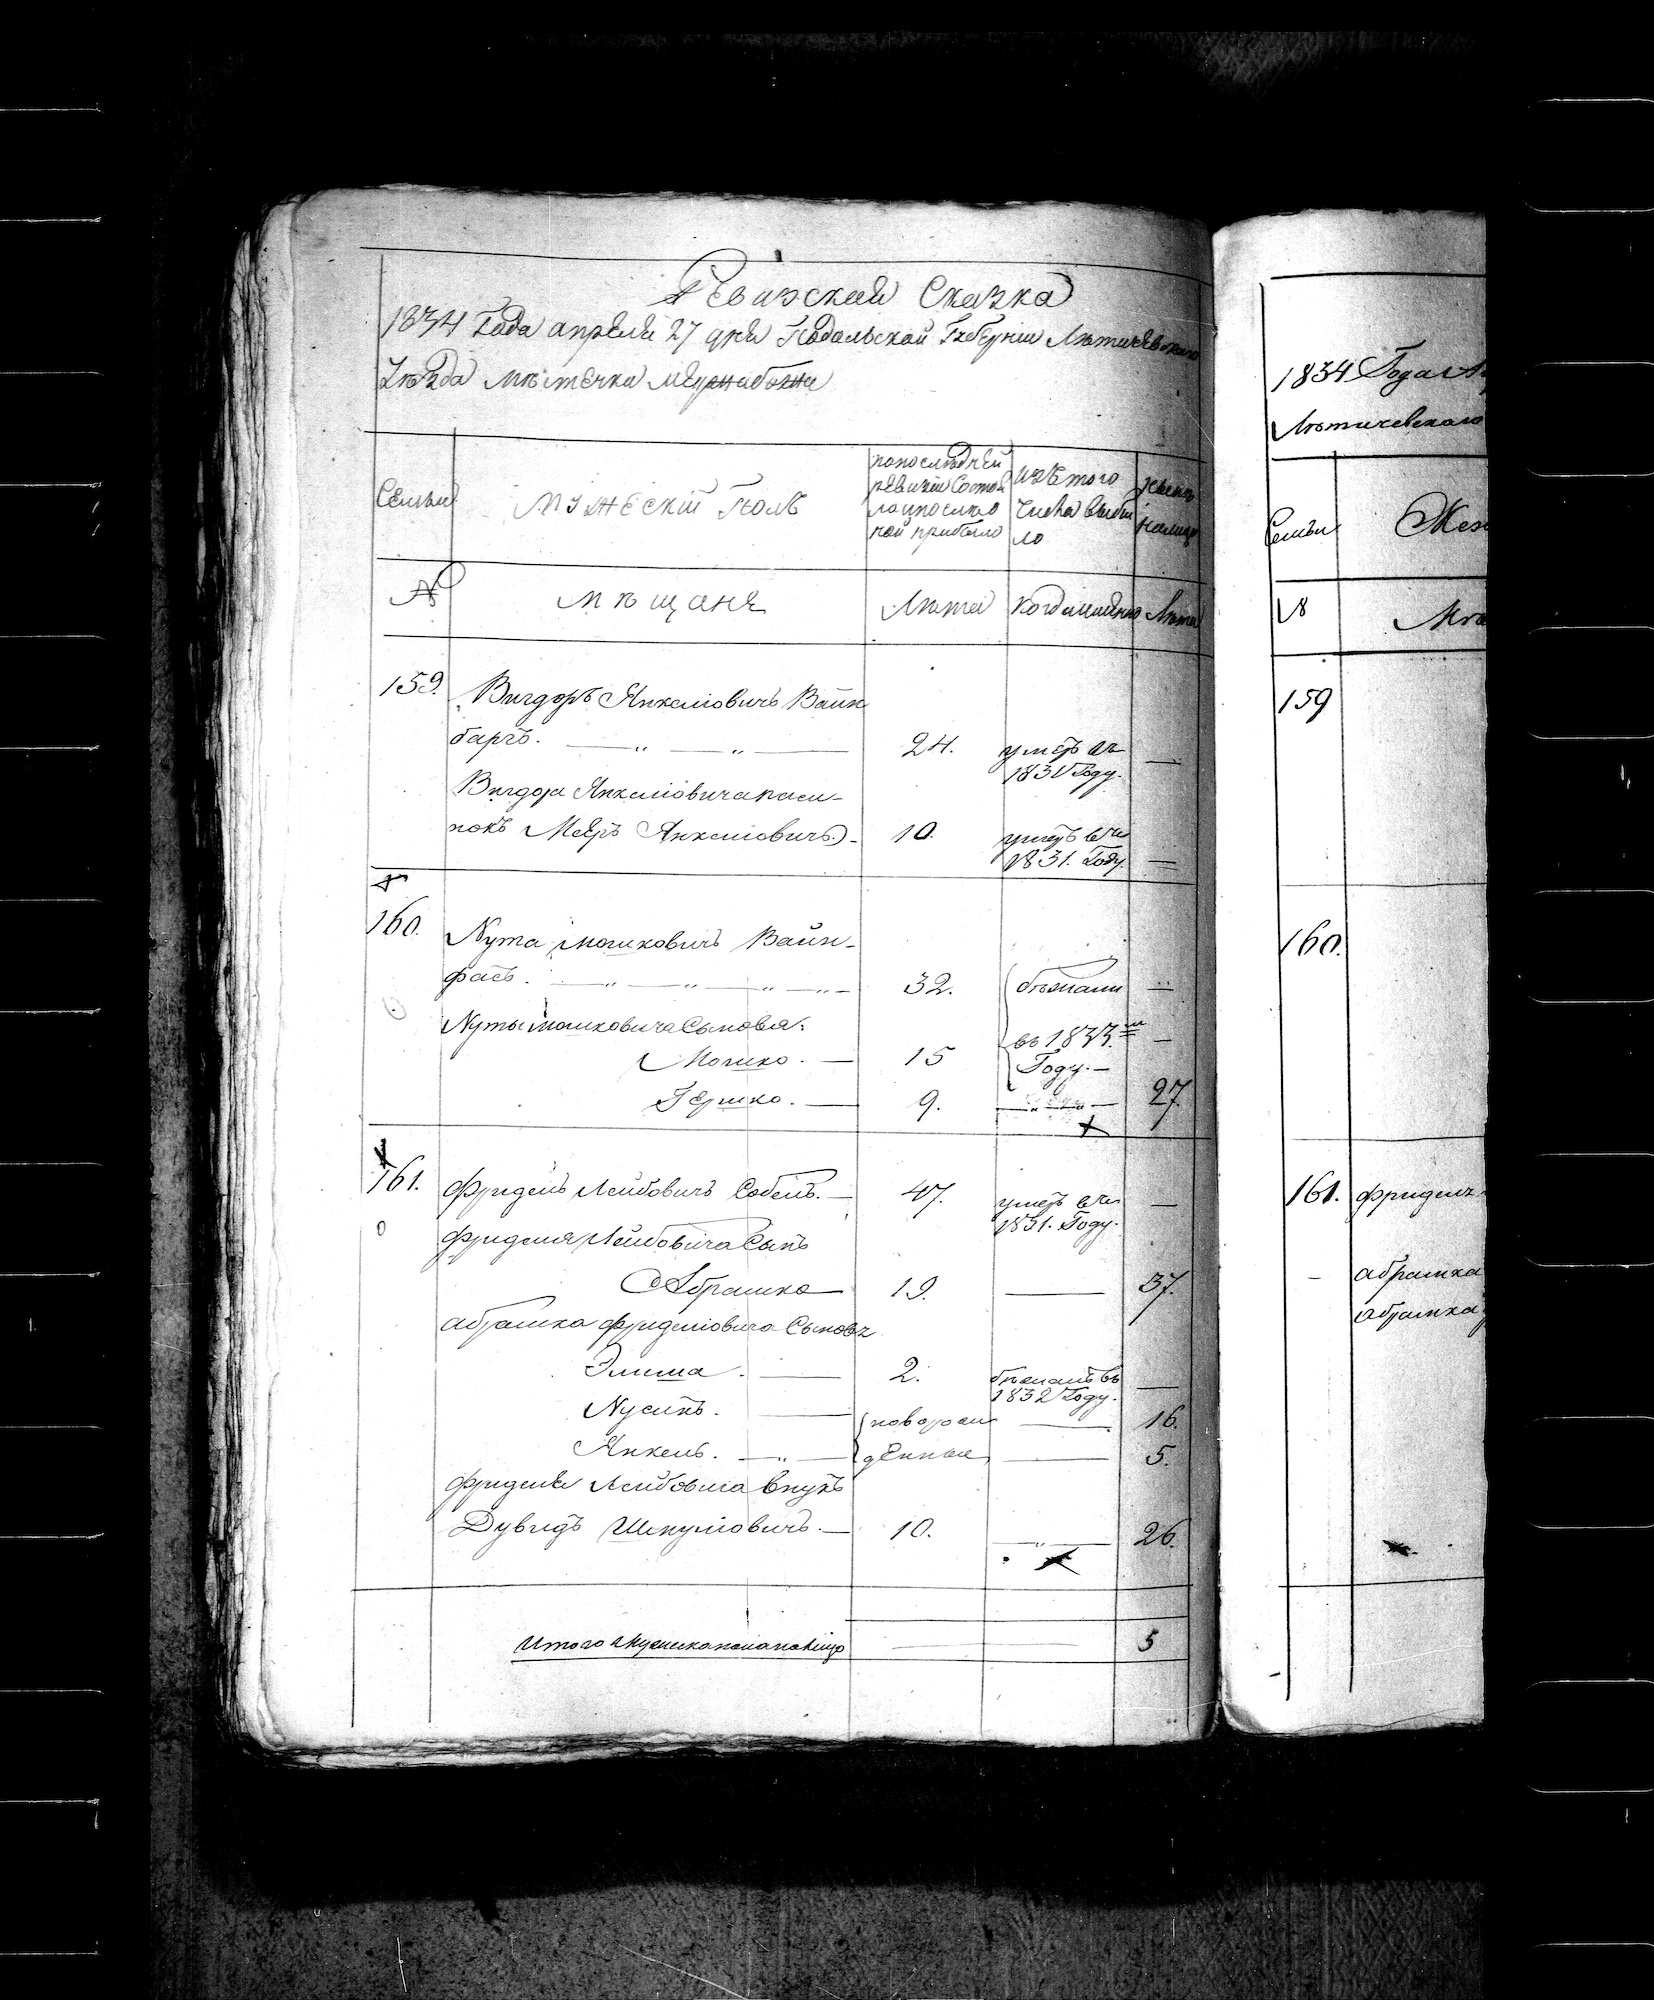 Ревизская Сказка
1834 Года апреля 27 дня Подольской Губернии Летичевскаго
Уезда местечка Меджибожа
Семьи
Мужескій Полъ
по последней
ревизіи состоя
ло и после
ной прибыло
Изъ того
Числа выбы
ло
ныне
налицо
№
мѣщане
Лѣта
когда именно
Лѣта
159.
Вигдоръ Янкеліовичъ Вайн
баргъ. — „ — „ —
24.
умеръ въ
1831 Году.
—
Вигдора Янкеліовича пасы-
нокъ Мееръ Янкеліовичъ. -
10.
умеръ въ
1831. Году
—
160.
Нута Мошковичъ Вайн-
фасъ. — „ — „ — „ — „ —
32.
бежали
—
Нуты Мошковича Сыновья:
Мошко. —
15
въ 1833.м
Году. —
—
Гершко. —
9.
— „ — „ —
27.
161.
Фридель Лейбовичъ Собель. —
47.
умеръ въ
1831. Году.
—
Фриделя Лейбовича Сынъ
Абрашко
19.
—
37.
Абрашка Фриделіовича Сыновья
Элиша. —
2.
бежалъ въ
1832 Году.
—
Нусинъ. —
новорож
—
16.
Янкель. — „ —
денные
—
5.
Фриделя Лейбовича Внукъ
Дувидъ Шмуліовичъ. —
10.
— „ —
26.
Итого мужеска пола налицо
—
5
1834 Года А
Летичевскаго
Семьи
Жен
№
159
160.
161.
Фридель
— Абрашка
Абрашка